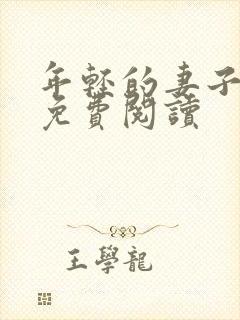 年轻的妻子
免費閱讀
王學龍